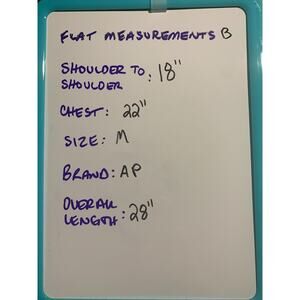 FLAT MEASUREMENTS B
SHOULDER TO
SHOULDER : 18"
CHEST: 22"
SIZE: M
BRAND: AP
OVERALL
LENGTH: 28"